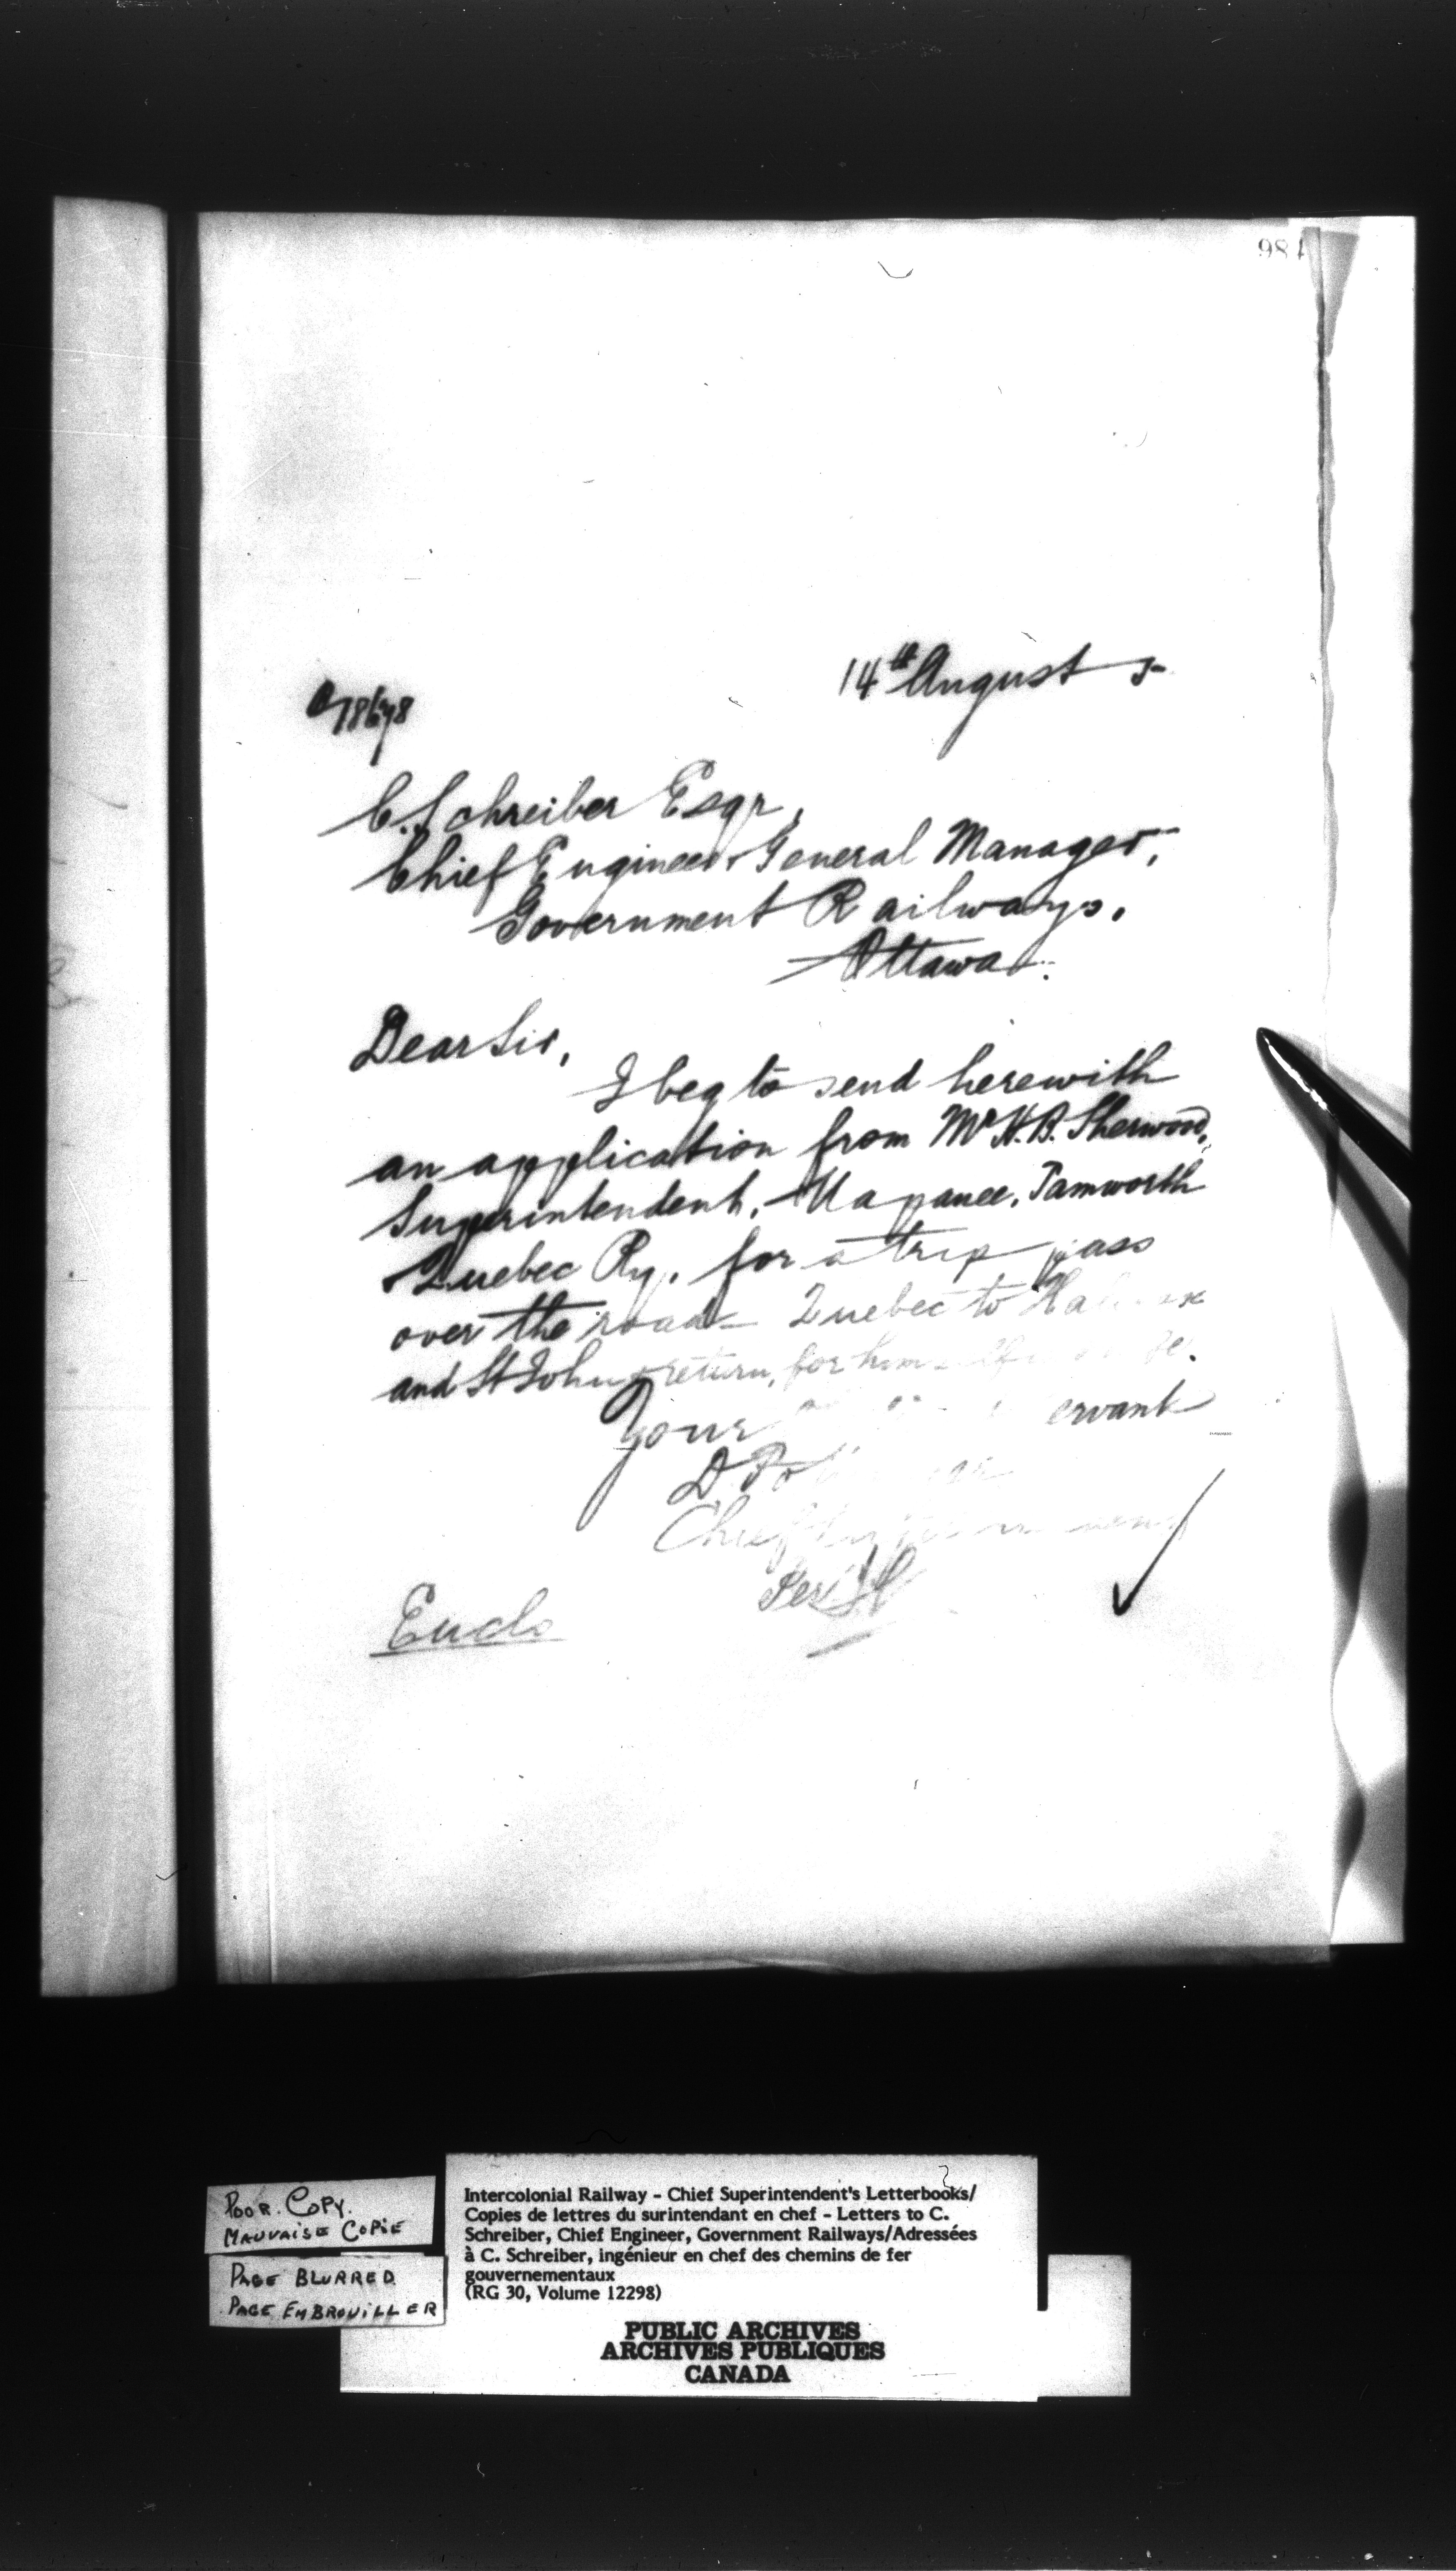 14th August 5
C. Schreiber Esqr,
Chief Engineer & General Manager,
Government Railways,
Ottawa.
Dear Sir,
I beg to send herewith
an application from Mr H.B. Sherwood,
Superintendent, Napanee, Tamworth
& Quebec Ry. for a trip pass
over the road Quebec to
and St John & return, for
Your
D.
Chief
Per
Enclo
POOR COPY.
MAUVAISE COPIE
PAGE BLURRED
PAGE EMBROUILLER
Intercolonial Railway - Chief Superintendent's Letterbooks/
Copies de lettres du surintendant en chef - Letters to C.
Schreiber, Chief Engineer, Government Railways/Adressées
à C. Schreiber, ingénieur en chef des chemins de fer
gouvernementaux
(RG 30, Volume 12298)
PUBLIC ARCHIVES
ARCHIVES PUBLIQUES
CANADA